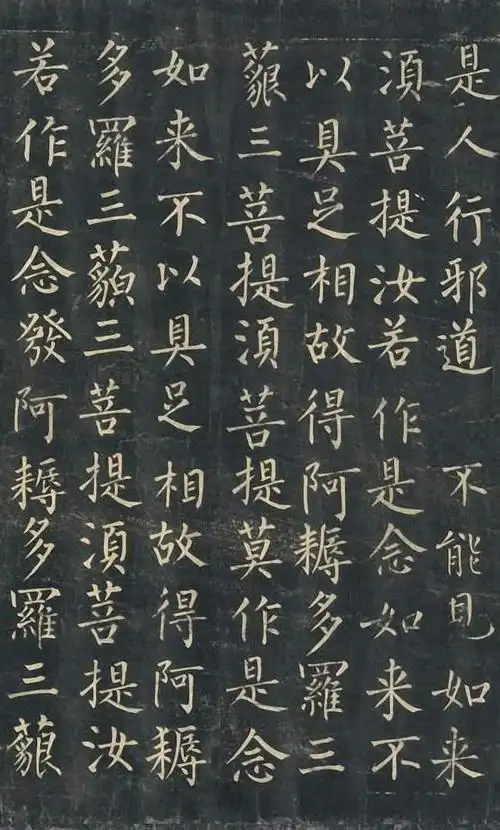 是人行邪道 不能見如来
湏菩提汝若作是念如来不
以具足相故得阿耨多羅三
藐三菩提湏菩提莫作是念
如来不以具足相故得阿耨
多羅三藐三菩提湏菩提汝
若作是念發阿耨多羅三藐